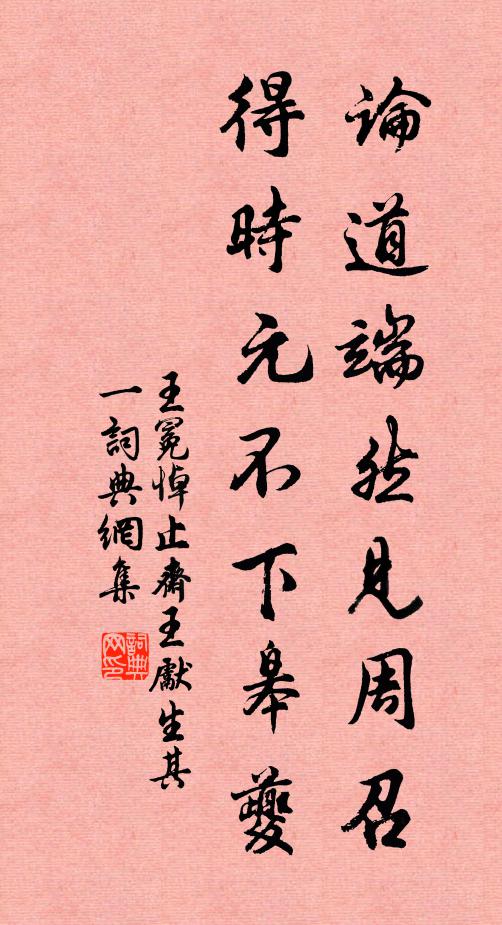 論道端然見周召
得時元不下皋夔
王冕悼止齋王獻生其
一詞典網集
詞典
网印